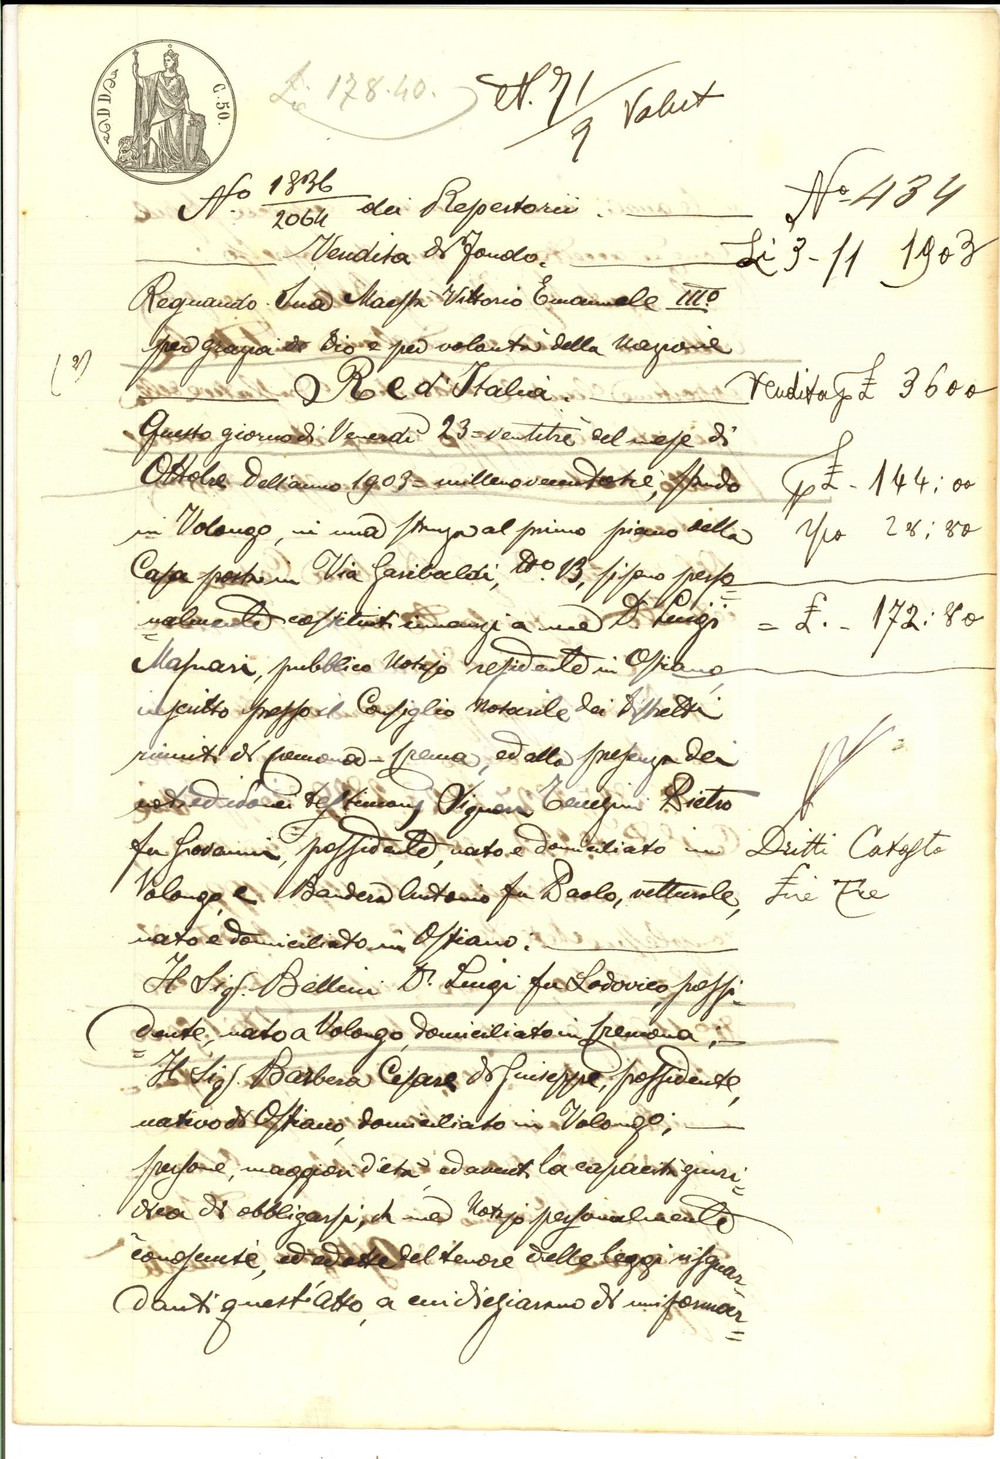 C. 50.
£ 178.40.
N. 71/9 Volut
N.º 1836/2064 dei Repertorii.
Nº 434
Vendita di Fondo.
Li 3-11 1903
Regnando Sua Maestà Vittorio Emanuele IIIº
per grazia di Dio e per volontà della Nazione
(2)
Re d'Italia.
Vendita p £ 3600
Questo giorno di Venerdì 23 = ventitrè del mese di
Ottobre dell'anno 1903 = millenovecentotrè, stando
p £ - 144:00
in Volongo, in una stanza al primo piano della
28:80
Casa posta in Via Garibaldi, Nº 13, si sono perso=
=nalmente costituiti innanzi a me Dr. Luigi
= £. - 172:80
Masnari, pubblico Notajo residente in Ostiano,
inscritto presso il Consiglio Notarile dei Distretti
riuniti di Cremona-Crema, ed alla presenza dei
noti ed idonei testimonj Signori Pietro
fu Giovanni, possidente, nato e domiciliato in
Dritti Catasto
Volongo, e Bandera Antonio fu Paolo, vetturale,
Lire Tre
nato e domiciliato in Ostiano.
Il Sig. Bellini Dr. Luigi fu Lodovico, possi=
=dente, nato a Volongo, domiciliato in Cremona;
Il Sig. Barbera Cesare di Giuseppe, possidente,
nativo di Ostiano, domiciliato in Volongo;
persone, maggiori d'età, ed aventi la capacità giuri=
dica di obbligarsi, da me Notajo personalmente
conosciute, ed edotte del tenore delle leggi risguar=
danti quest'Atto, a cui dichiarano di uniformar=